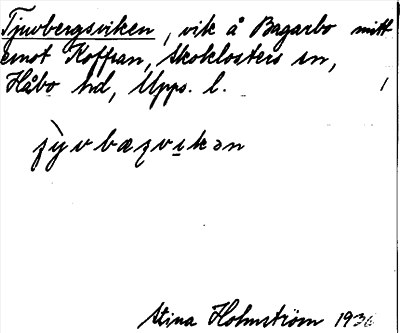 Tjuvbergsviken, vik å Bagarbo mitt
emot Koffsan, Skoklosters sn,
Håbo hd, Upps. l.
Stina Holmström 1936